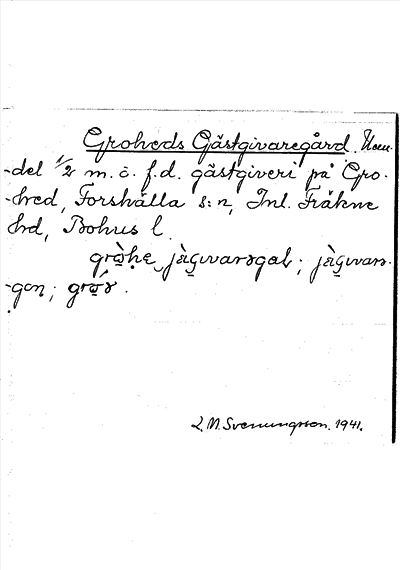 Groheds Gästgivaregård. Hem-
-del 1/2 m. ä. f.d. gästgiveri på Gro-
-hed, Forshälla s:n, Inl. Fräkne
hrd, Bohus l.
grò̤ḥe jàg̤ıvarsgaḷ; jàg̤ıvars-
-gaṇ;
L. M. Svenungsson. 1941.